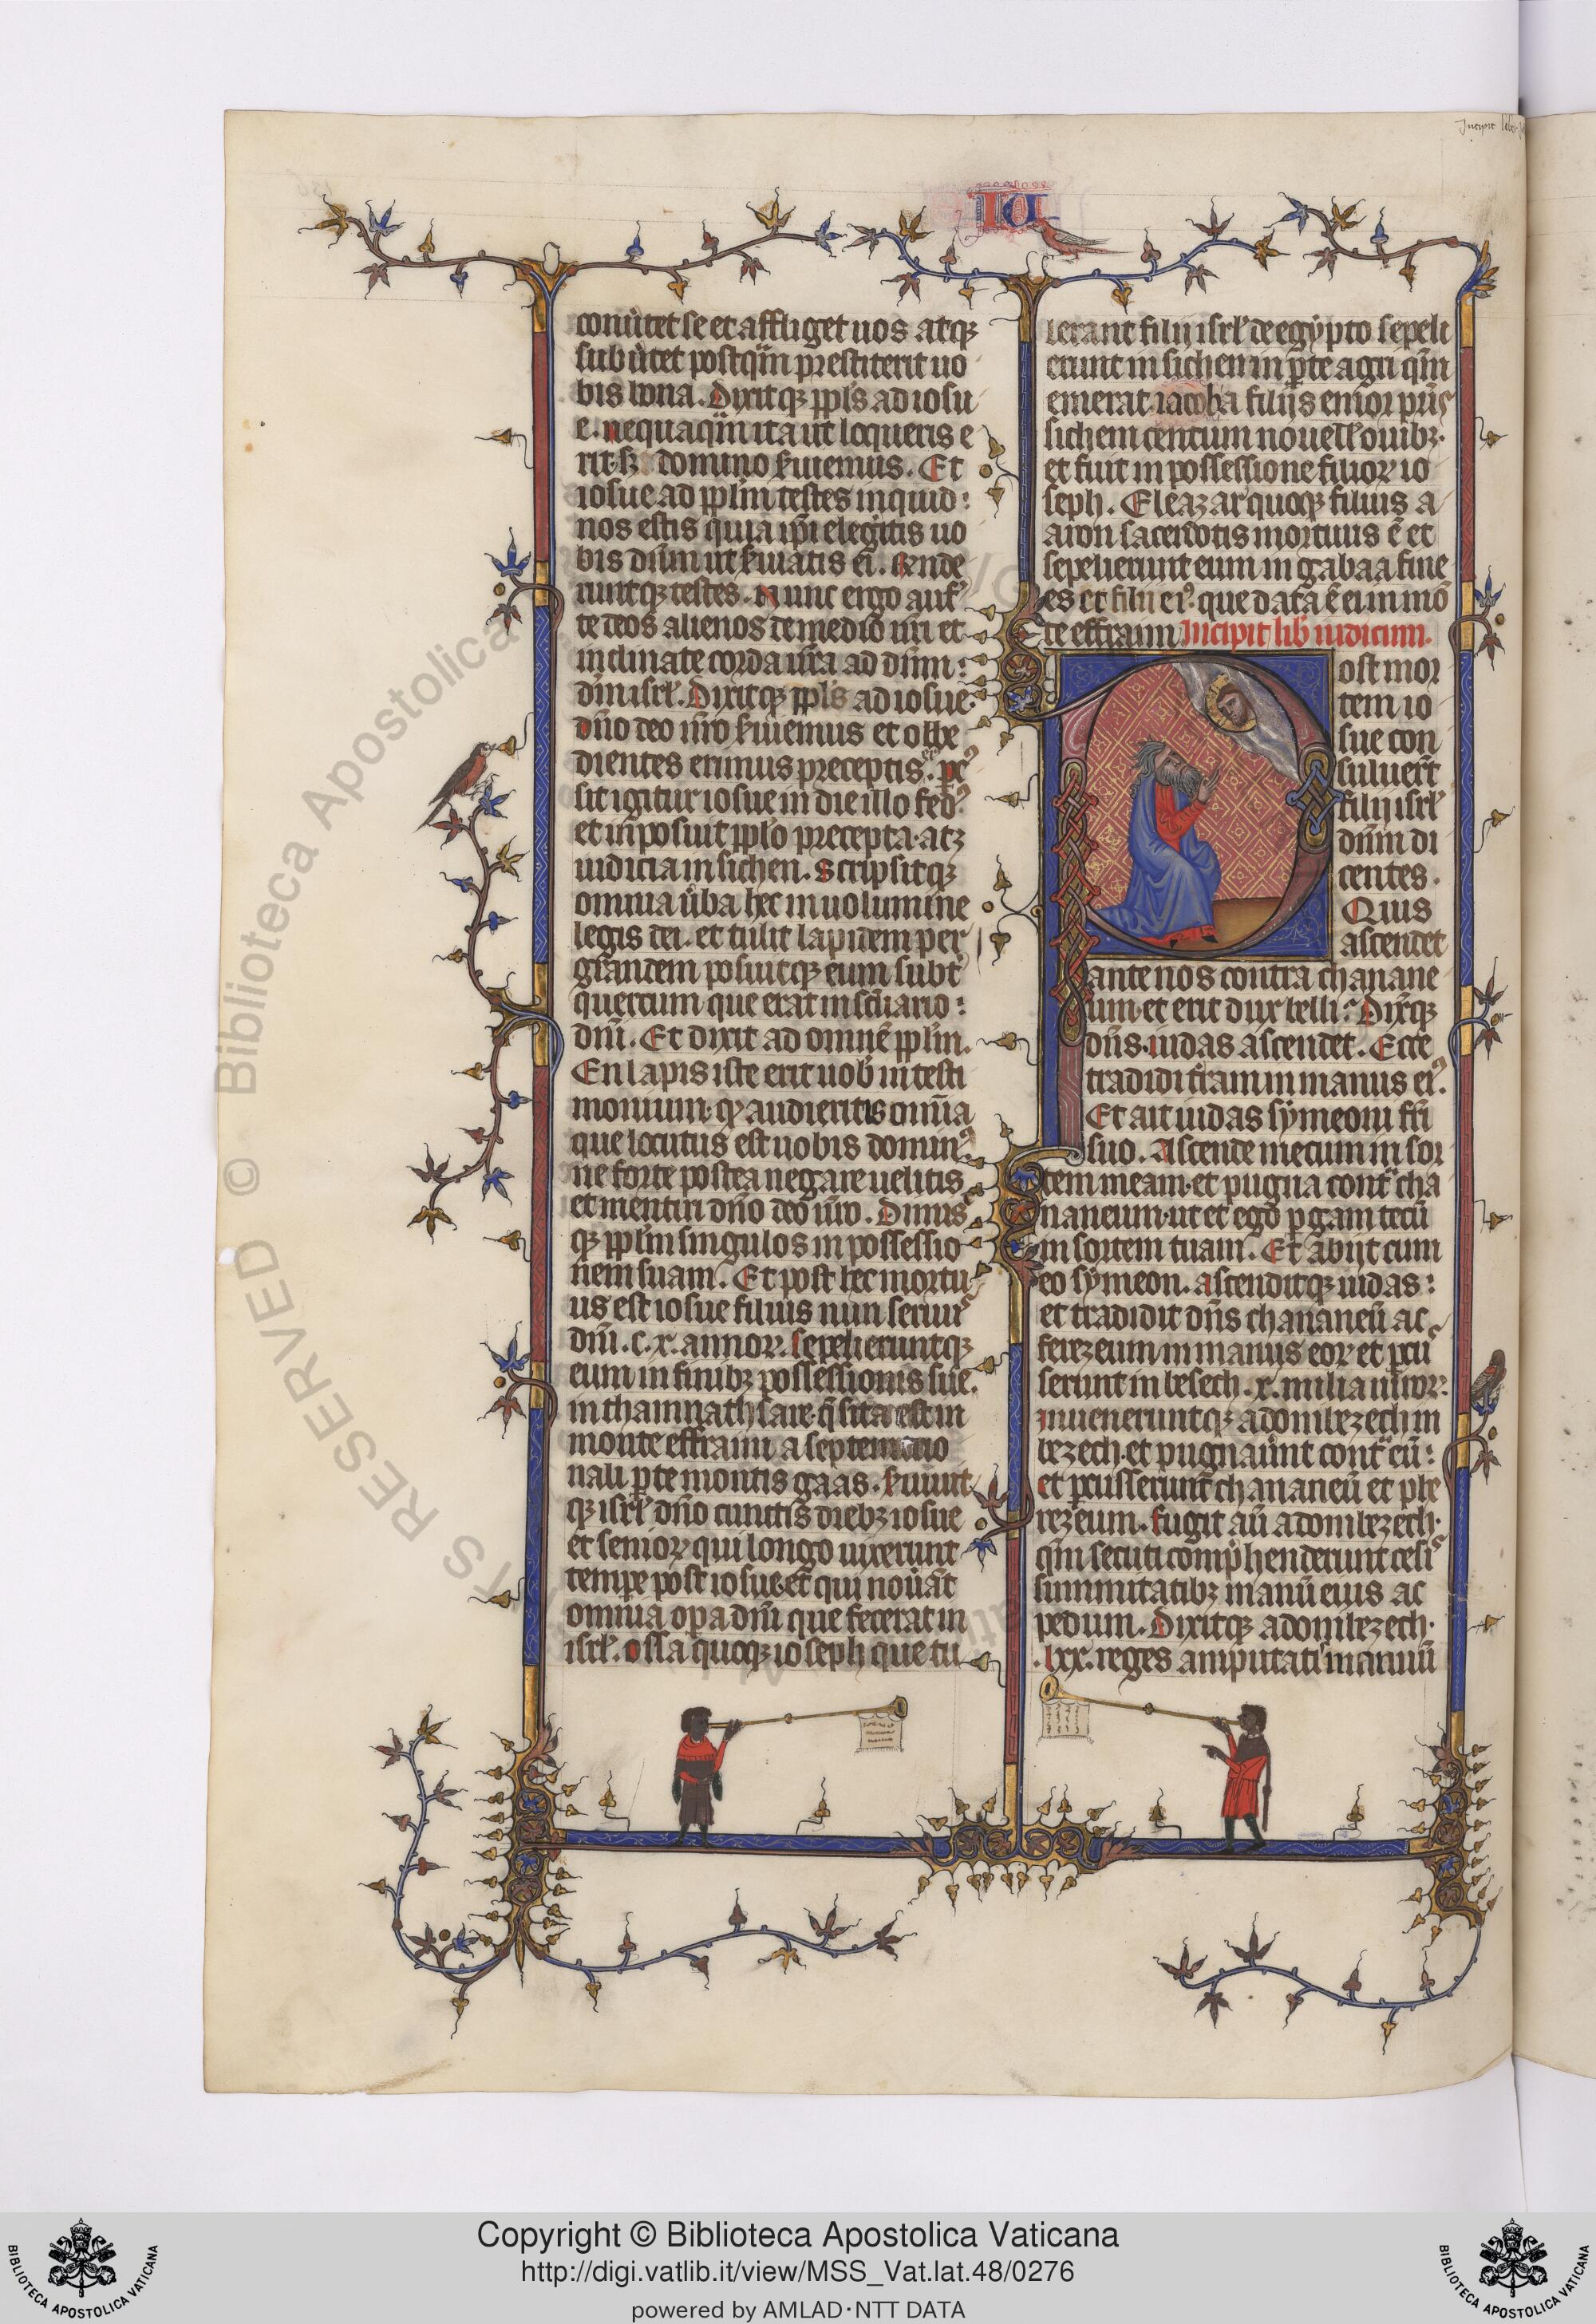 Incipit liber
IU
conuertet se et affliget uos atqꝫ
subuertet postqͣm prestiterit uo
bis bona. Dixitqꝫ ppl̅s ad iosu
e. nequaqͣm ita ut loqueris e
rit. sꝫ domino s̾uiemus. Et
iosue ad ppl̅m testes inquid:
uos estis quia ip̅i elegitis uo
bis dn̅m ut s̾uiatis ei. Rn̅de
runtqꝫ testes. Nunc ergo auf̾
te deos alienos de medio ur̅i et
inclinate corda ur̅a ad dn̅m:
dm̅ isrl̅. Dixitqꝫ ppl̅s ad iosue.
dn̅o deo nr̅o s̾uiemus et obbe
dientes erimus preceptis eꝰ. pcꝰ
sit igitur iosue in die illo fedꝰ.
et in̅posuit ppl̅o precepta. atqꝫ
iudicia in sichen. Scripsitqꝫ
omnia u̾ba hec in uolumine
legis dei. et tulit lapidem per
grandem posuitqꝫ eum subt̾
quercum que erat in sc̅uario:
dn̅i. Et dixit ad omne̅ ppl̅m.
En lapis iste erit uob̅ in testi
monium. qꝫ audieritis omnia
que locutus est uobis dominꝰ.
ne forte postea negare uelitis
et mentiri dn̅o deo ur̅o. Dimis̾
qꝫ ppl̅m singulos in possessio
nem suam. Et post hec mortu
us est iosue filius nun seruus
dn̅i. c. x. annoꝝ. Sepelieruntqꝫ
eum in finibꝫ possessionis sue.
in thamnath sare. q̅ sita est in
monte effraim a septemtrio
nali p̲te montis gaas. S̾uiuit
qꝫ isrl̅ dn̅o cunctis diebꝫ iosue
et senioꝝ qui longo uixerunt
tempe̅ post iosue. et qui nouer̅at
omnia op̲a dn̅i que fecerat in
isrl̅. Ossa quoqꝫ ioseph que tu
lerant filij isrl̅ de egypto sepeli
erunt in sichen in p̲te agri qͣm
emerat iacob a filijs emor pr̅is
sichem centum nouell̅ ouibꝫ.
et fuit in possessione filioꝝ io
seph. Eleazar quoqꝫ filius a
aron sacerdotis mortuus e̅ et
sepelierunt eum in gabaa fine
es et filii eiꝰ. que data e̅ ei in mo̅
te effraim Incipit lib̅ iudicum.
Post mor
tem io
sue con
suluer̅t
filij isrl̅
dn̅m di
centes.
Quis
ascendet
ante nos contra chanane
um. et erit dux belli? Dix̅qꝫ
dn̅s. iudas ascendet. Ecce
tradidi terram in manus eiꝰ.
Et ait iudas symeoni fr̅i
suo. Ascende mecum in sor
tem meam. et pugna contͣ cha
naneum. ut et ego p̲gam tecu̅
in sortem tuam. Et abijt cum
eo symeon. ascenditqꝫ iudas:
et tradidit dn̅s chananeu̅ ac
ferezeum in manus eoꝝ et p̲cus
serunt in besech. x. milia uiroꝝ.
inueneruntqꝫ adonibezech in
bezech. et pugnauer̅unt contͣ eu̅:
et p̲cusserunt chananeu̅ et phe
rezeum. Fugit au̅ adonibezech.
qͣm secuti comp̲henderunt cesis
summitatibꝫ manuu̅ eius ac
pedum. Dixitqꝫ adonibezech.
.lxx. reges amputatis manuu̅
RESERVED © Biblioteca Apostolica
Copyright © Biblioteca Apostolica Vaticana
http://digi.vatlib.it/view/MSS_Vat.lat.48/0276
powered by AMLAD·NTT DATA
BIBLIOTECA APOSTOLICA VATICANA
BIBLIOTECA APOSTOLICA VATICANA